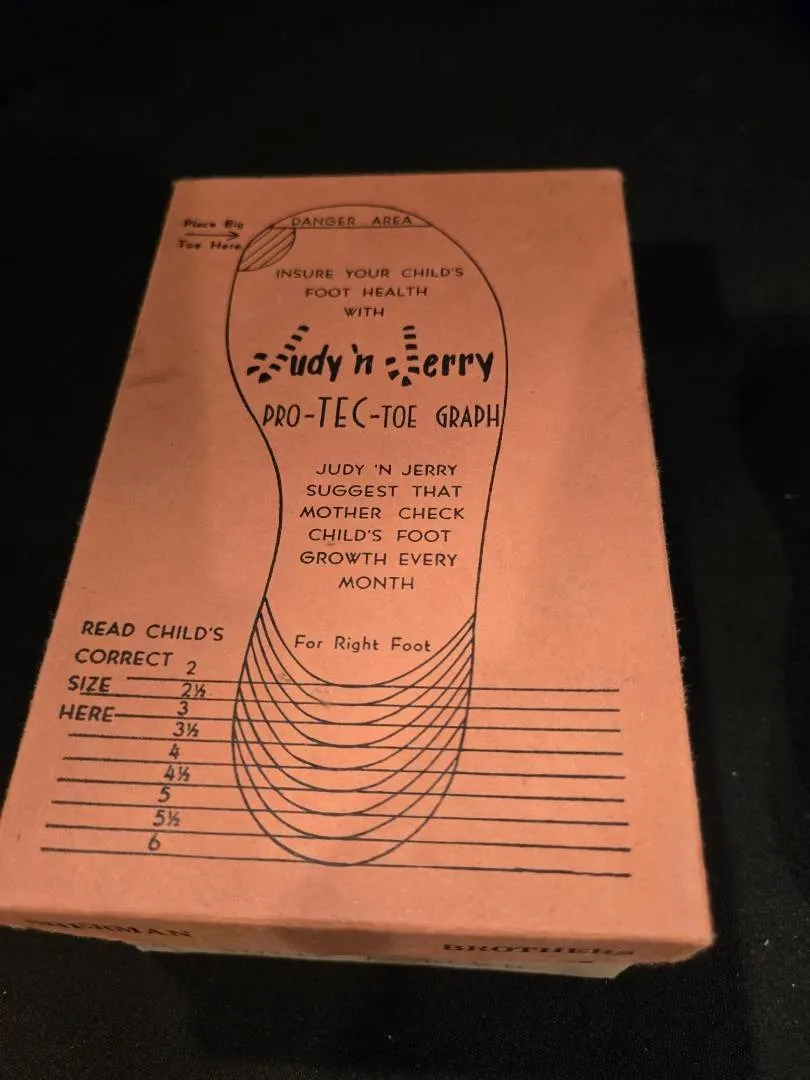 Place Big
Toe Here
DANGER AREA
INSURE YOUR CHILD'S
FOOT HEALTH
WITH
Judy 'n Jerry
PRO-TEC-TOE GRAPH
JUDY 'N JERRY
SUGGEST THAT
MOTHER CHECK
CHILD'S FOOT
GROWTH EVERY
MONTH
For Right Foot
READ CHILD'S
CORRECT
SIZE
HERE
2
2½
3
3½
4
4½
5
5½
6
SHERMAN BROTHERS